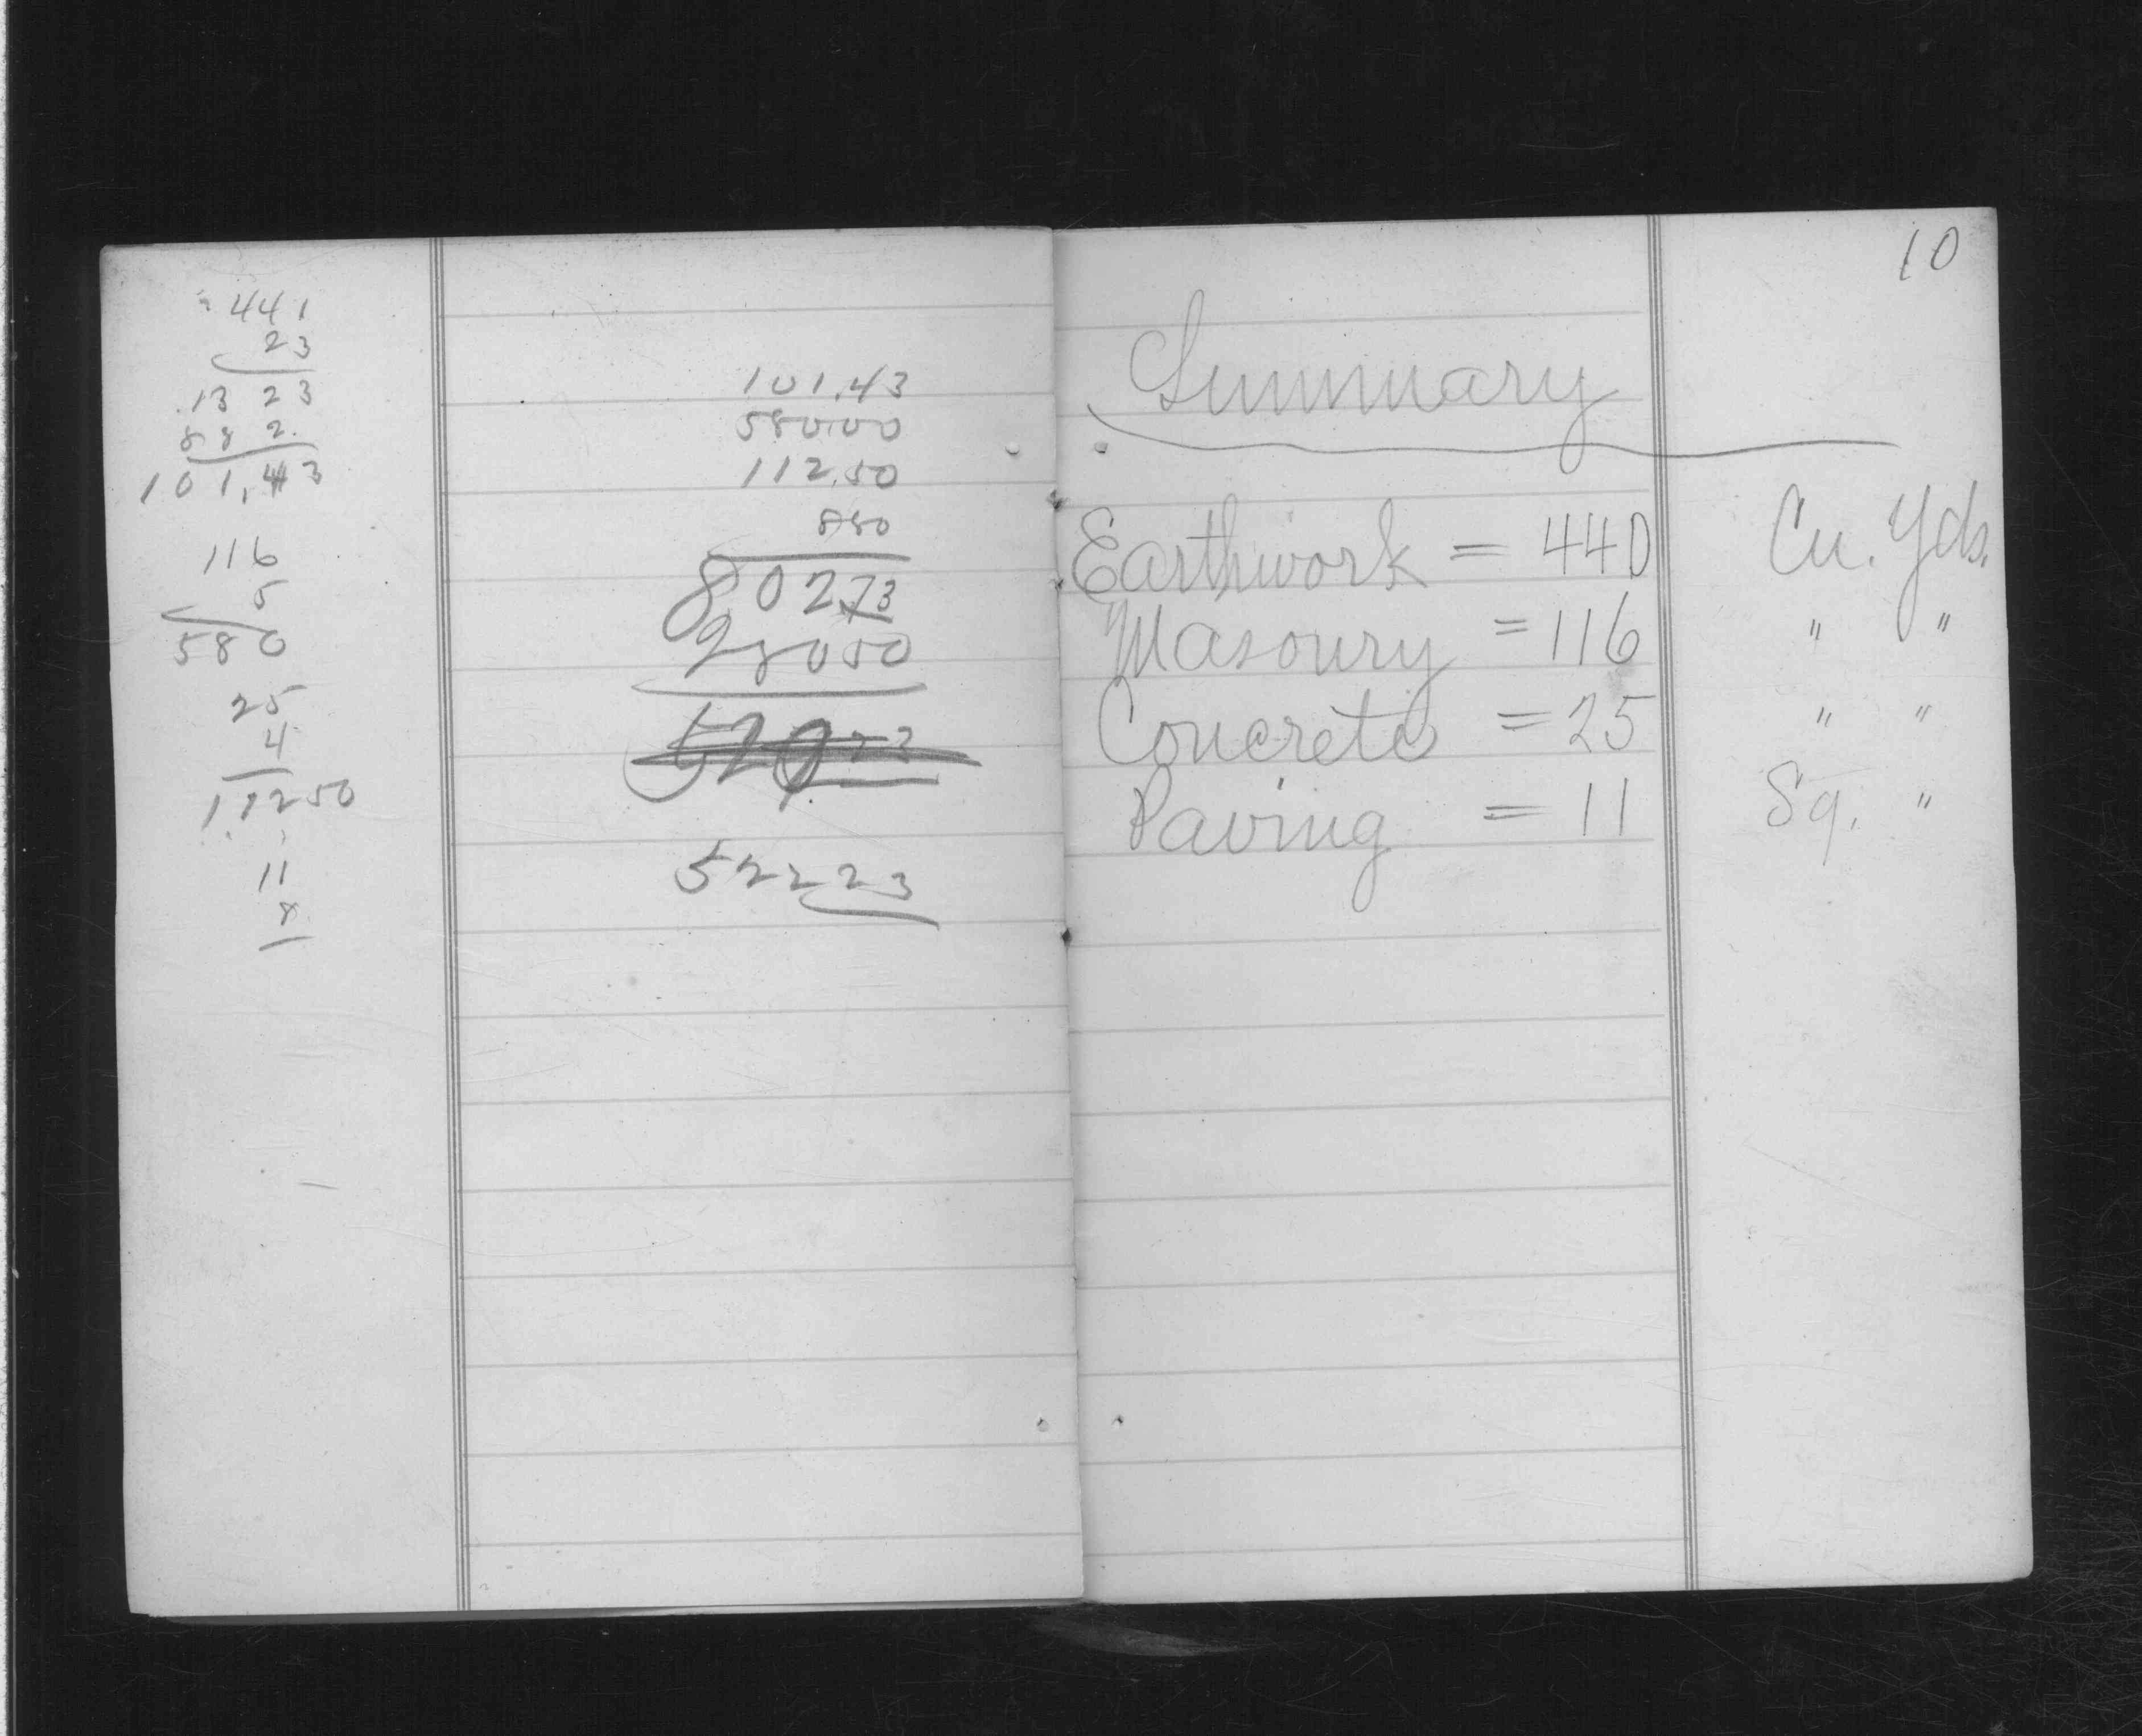 441
23
13 23
8 8 2.
101,43
116
5
580
25
4
112 50
11
8
101.43
580.00
112.50
880
802.73
280 50
522 23
10
Summary
Earthwork = 440 Cu. Yds.
Masonry = 116 " "
Concrete = 25 " "
Paving = 11 Sq. "